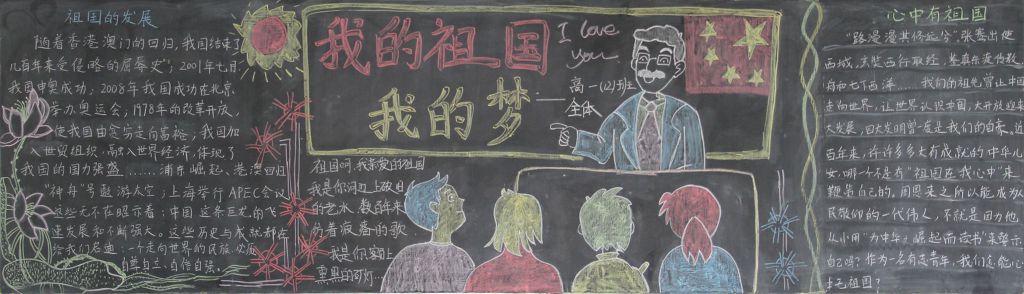 祖国的发展
随着香港澳门的回归,我国结束了
几百年来受侵略的屈辱史";2001年七月
我国申奥成功;2008年我国成功在北京
举办奥运会,1978年的改革开放,
使我国由贫穷走向富裕,我国加
入世贸组织,融入世界经济,体现了
我国的国力强盛……浦东崛起、港澳回归
"神舟"号遨游太空;上海举行APEC会议
这些无不在昭示着:中国这条巨龙的飞
速发展和不断强大。这些历史与成就都在
给我们启迪:一个走向世界的民族必须
自尊自立、自信自强。
我的祖国
我的梦
I love
you
高一(2)班
全体
祖国呵,我亲爱的祖国
我是你河边上破旧
的老水 数百年来
纺着疲惫的歌
我是你额上
熏黑的矿灯
心中有祖国
"路漫漫其修远兮"张骞出使
西域,玄奘西行取经,鉴真东渡传教,
舟和七下西洋……我们的祖先曾让中国
走向世界,让世界认识中国,大开放迎来
大发展,四大发明曾一度是我们的自豪,近
百年来,许许多多大有成就的中华儿
女,哪一个不是有"祖国在我心中"来
鞭策自己的,周恩来之所以能成为
民敬仰的一代伟人,不就是因为他,
从小用"为中华之崛起而读书"来警示
自己吗?作为一名有志青年,我们怎能心
祖国?